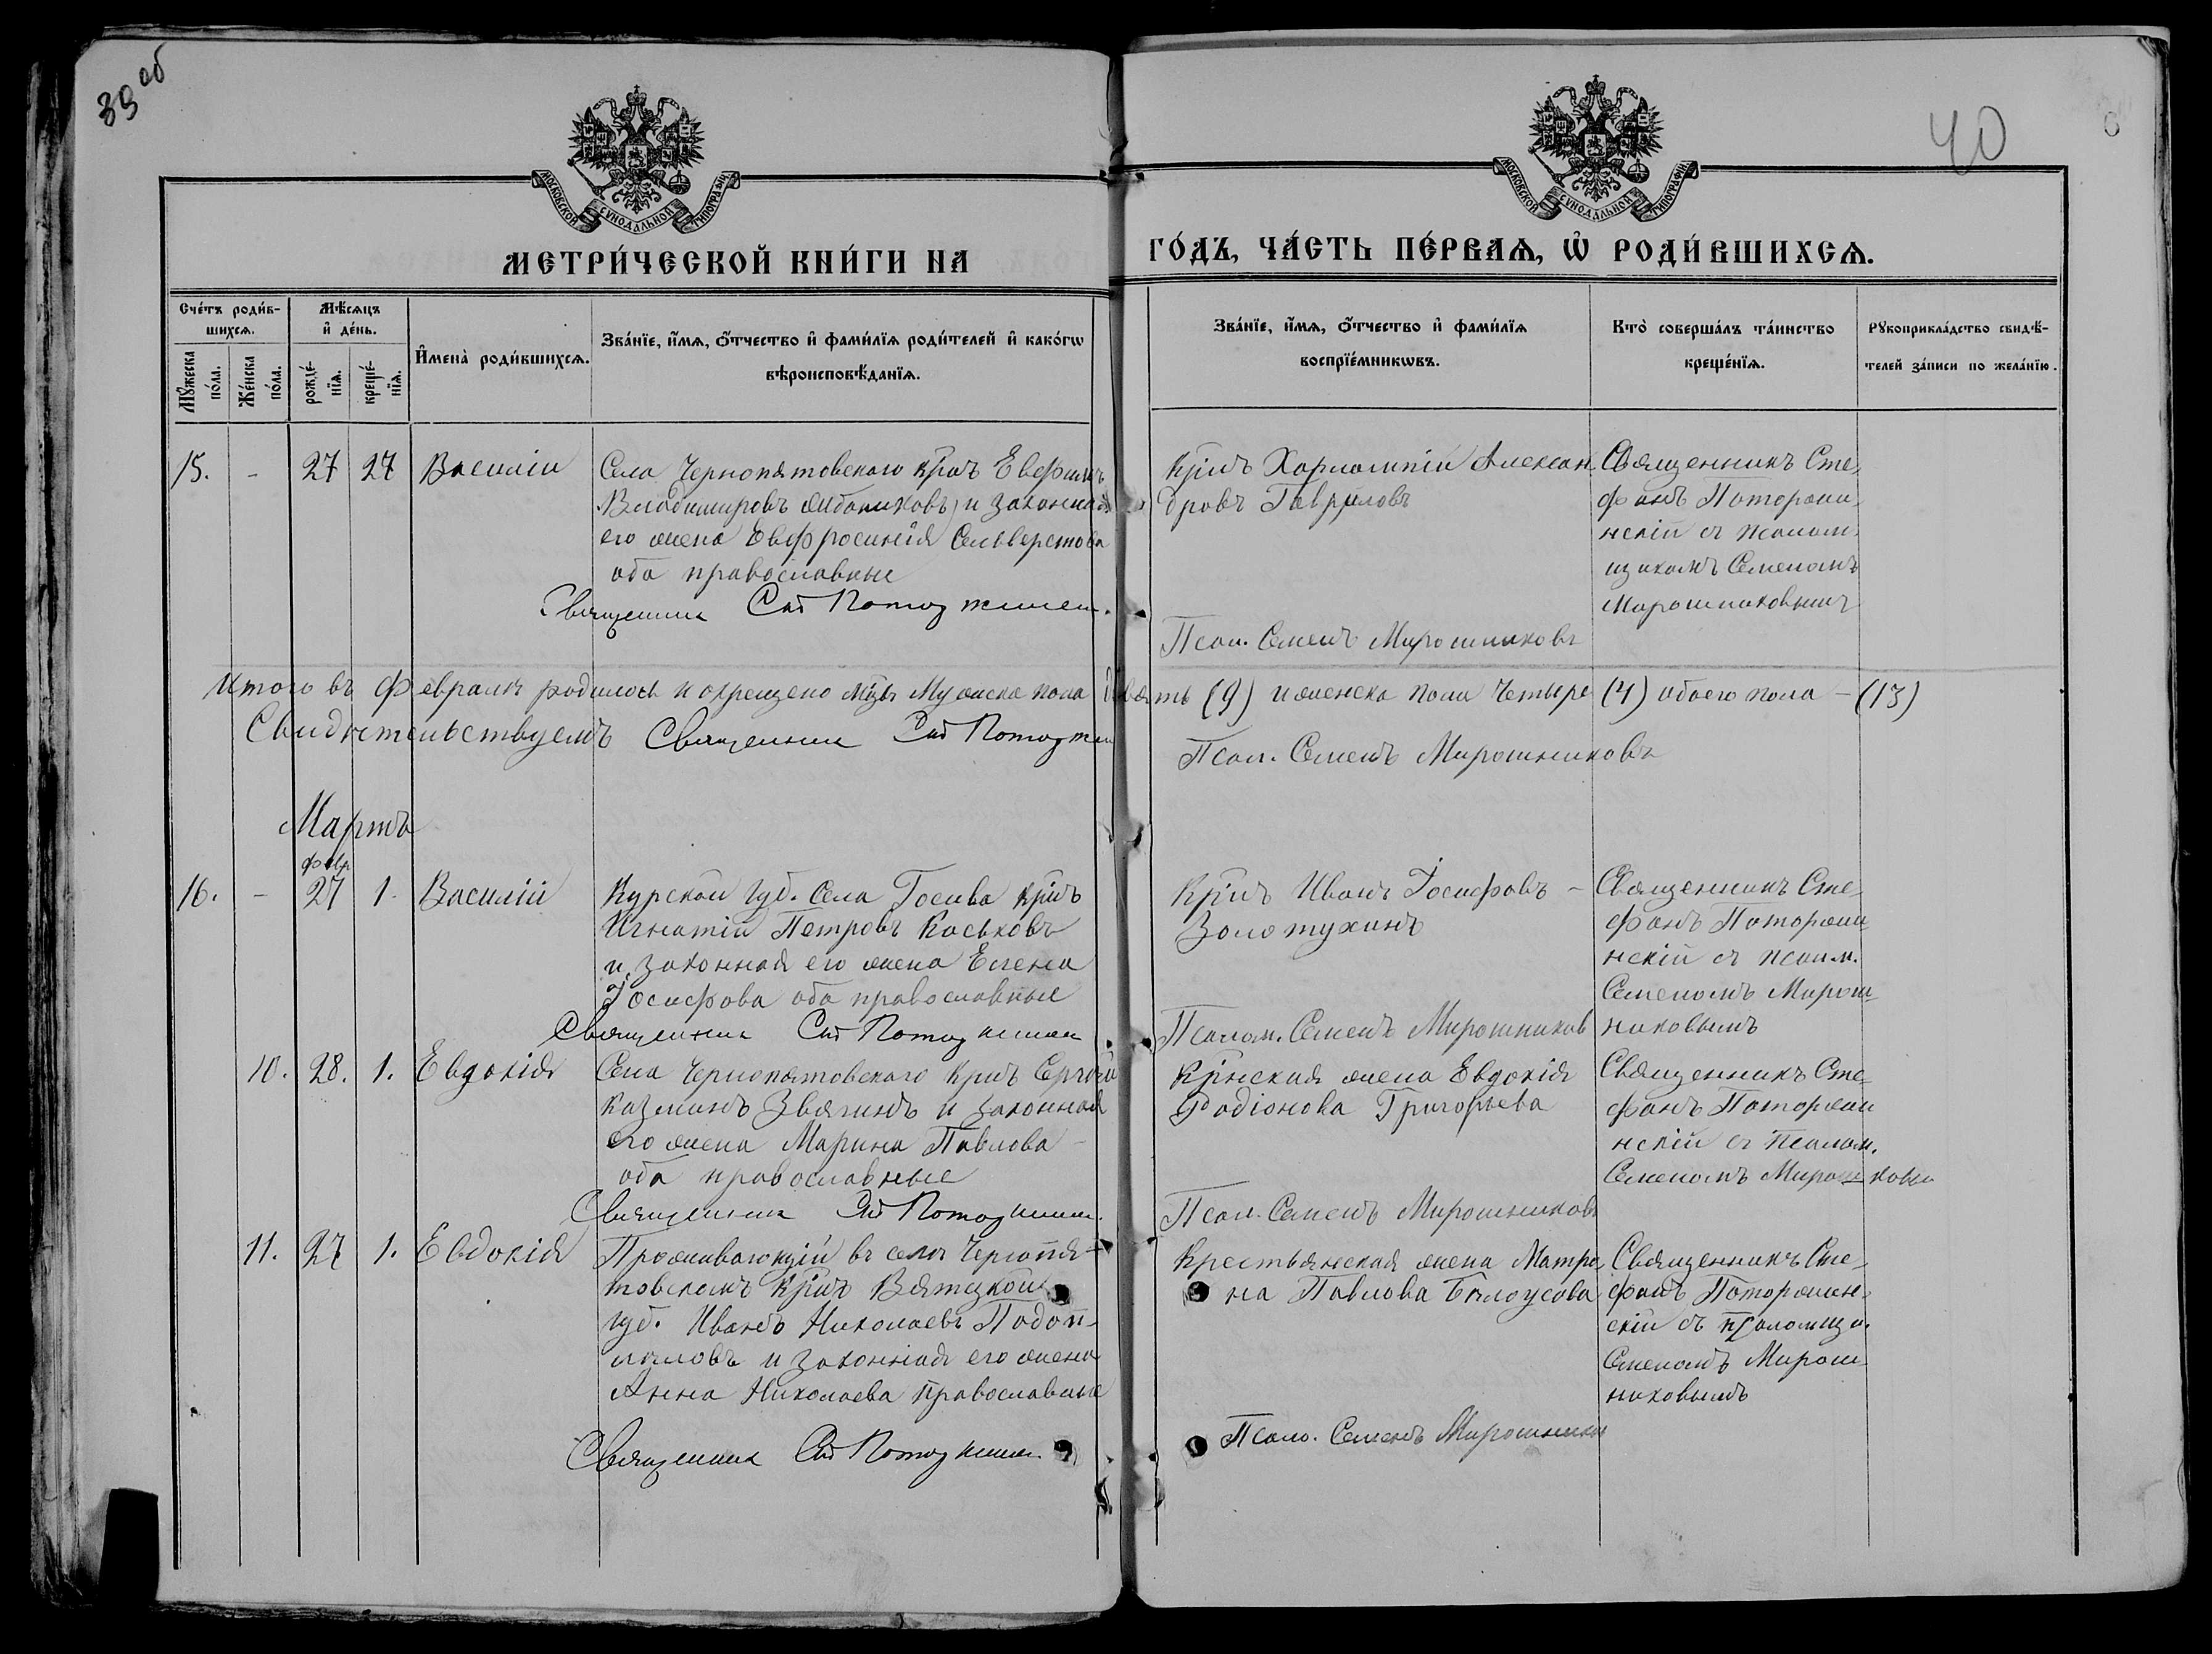 39 об
40
МОСКОВСКОЙ СѴНОДАЛЬНОЙ ТИПОГРАФІИ
МОСКОВСКОЙ СѴНОДАЛЬНОЙ ТИПОГРАФІИ
МЕТРИ́ЧЕСКОЙ КНИ́ГИ НА
ГО́ДЪ, ЧА́СТЬ ПЕ́РВАѦ, Ѡ҆ РОДИ́ВШИХСѦ.
Сче́тъ роди́в-
шихсѧ.
Мꙋ́жеска по́ла.
Же́нска по́ла.
Мѣ́сѧцъ
и҆ де́нь.
рожде́-нїѧ.
креще́-нїѧ.
И҆мена̀ роди́вшихсѧ.
Зва́нїе, и҆́мѧ, ѻ҆́тчество и҆ фами́лїѧ роди́телей и҆ како́гѡ
вѣроисповѣ́данїѧ.
Зва́нїе, и҆́мѧ, ѻ҆́тчество и҆ фами́лїѧ
воспрїе́мникѡвъ.
Кто̀ соверша́лъ та́инство
креще́нїѧ.
Рꙋкоприкла́дство свидѣ́-
телей за́писи по жела́нїю.
15. - 27 27 Василій
Села Чернопятовскаго кр̃нъ
Владимировъ и законная
его жена Евфросинія Сельверстова
оба православные
Священникъ
Кр̃нъ Харлампій Алексан-
дровъ Гавриловъ
Псал. Семенъ Мирошниковъ
Священникъ Сте-
фанъ Поторжи-
нскій съ псалом-
щикомъ Семеномъ
Мирошниковымъ
Итого въ Февралѣ родилось и окрещено Мужеска пола Девять (9) и женска пола Четыре (4) обоего пола - (13)
Свидѣтельствуемъ Священникъ
Псал. Семенъ Мирошниковъ
Мартъ
февр
16. - 27 1. Василій
Курской губ. Села кр̃нъ
Игнатій Петровъ Каськовъ
и законная его жена Елена
Іосифова оба православные
Священникъ
Кр̃нъ Иванъ Іосифовъ -
Золотухинъ
Псалом. Семенъ Мирошников
Священникъ Сте-
фанъ Поторжи-
нскій съ псалм.
Семеномъ Мирош-
никовымъ
10. 28. 1. Евдокія
Села Чернопятовскаго кр̃нъ Сергѣй
Казминъ Звягинъ и законная
его жена Марина Павлова -
оба православные
Священникъ
Кр̃нская жена Евдокія
Родіонова Григорьева
Псал. Семенъ Мирошниковъ
Священникъ Сте-
фанъ Поторжи
нскій съ Псалом.
Семеномъ
11. 27 1. Евдокія
Проживающій въ селѣ Чернопя-
товскомъ кр̃нъ Вятской
губ. Иванъ Николаевъ
и законная его жена
Анна Николаева православные
Священникъ
Крестьянская жена Матре-
на Павлова Бѣлоусова
Псало. Семенъ
Священникъ Сте-
фанъ Поторжин-
скій съ псаломщи.
Семеномъ Мирош-
никовымъ